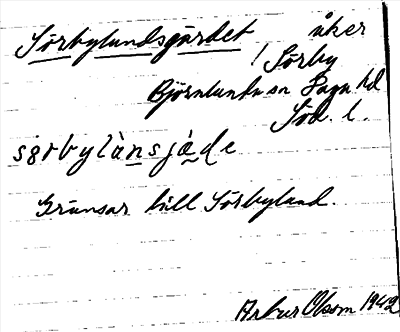 Sörbylundsgärdet åker
/ Sörby
Björnlunda sn Daga hd
Söd. l.
sørbylànsjǻde
Gränsar till Sörbylund.
Arthur Olsson 1942